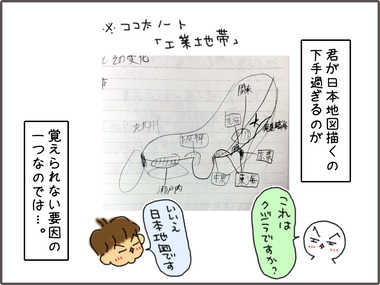 ※ココ太ノート
「工業地帯」
君が日本地図描くの
下手過ぎるのが
その変化
関東
瀬戸内
東海
これは
クジラですか？
いいえ
日本地図です
覚えられない要因の
一つなのでは…。